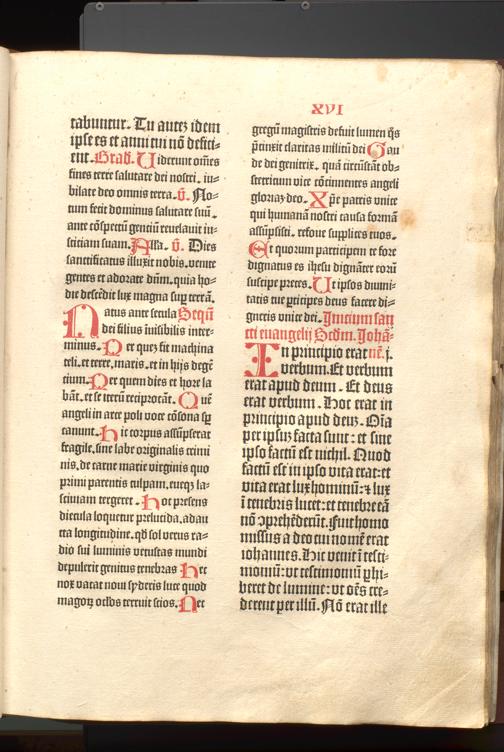 XVI
tabuntur. Tu autez idem
ipse es et anni tui nō defici-
ent. Grad̄. Uiderunt om̄es
fines terre salutare dei nostri. iu-
bilate deo omnis terra. v̄. No-
tum fecit dominus salutare suū.
ante cōspectū gentiū reuelauit iu-
sticiam suam. Alla. v̄. Dies
sanctificatus illuxit nobis. venite
gentes et adorate dn̄m. quia ho-
die descēdit lux magna sup terrā.
Natus ante secula Seqū
dei filius īuisibilis inter-
minus. Per quez fit machina
celi. et terre. maris. et in hijs dege-
tium. Per quem dies et hore la-
bāt. et se iterū reciprocāt. Quē
angeli in arce poli voce cōsona sp
canunt. Hic corpus assūpserat
fragile. sine labe originalis crimi
nis. de carne marie virginis quo
primi parentis culpam. eueqz la-
sciuiam tergeret. Hoc presens
diecula loquetur prelucida. adau
cta longitudine. qd sol verus ra-
dio sui luminis vetustas mundi
depulerit genitus tenebras Nec
nox vacat noui syderis luce quod
magoꝝ oclos terruit scios. Nec
gregū magistris defuit lumen q̄s
p̄tinxit claritas militū dei Gau
de dei genitrix. quā circūstāt ob-
stetricum vice cōcinentes angeli
gloriaz deo. Xp̄e patris vnice
qui humanā nostri causa formā
assūpsisti. refoue supplices tuos.
Et quorum participem te fore
dignatus es ihesu dignāter eorū
suscipe preces. Ut ipsos diuini-
tatis tue pticipes deus facere di-
gneris vnice dei. Inicium san
cti euangelij Scdm. Johā-
In principio erat nē. j.
verbum. Et verbum
erat apud deum. Et deus
erat verbum. Hoc erat in
principio apud deuz. Om̄ia
per ipsuz facta sunt: et sine
ipso factū est nichil. Quod
factū est in ipso vita erat: et
vita erat lux hominū: ⁊ lux
ī tenebris lucet: et tenebre eā
nō ꝯprehēderūt. Fuit homo
missus a deo cui nomē erat
iohannes. Hic venit ī testi-
moniū: vt testimoniū phi-
beret de lumine: vt oēs cre-
derent per illū. Nō erat ille